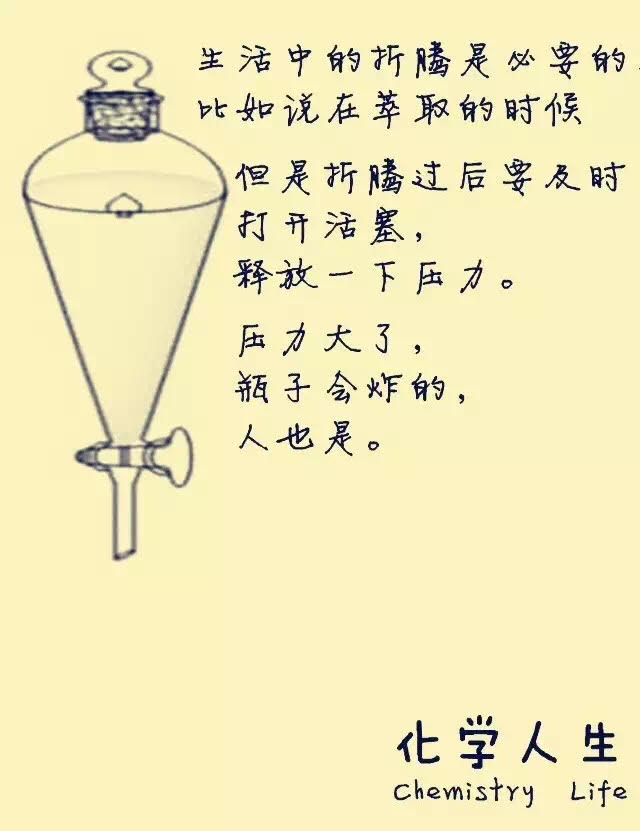 生活中的折腾是必要的.
比如说在萃取的时候
但是折腾过后要及时
打开活塞，
释放一下压力。
压力大了，
瓶子会炸的，
人也是。
化学人生
Chemistry Life